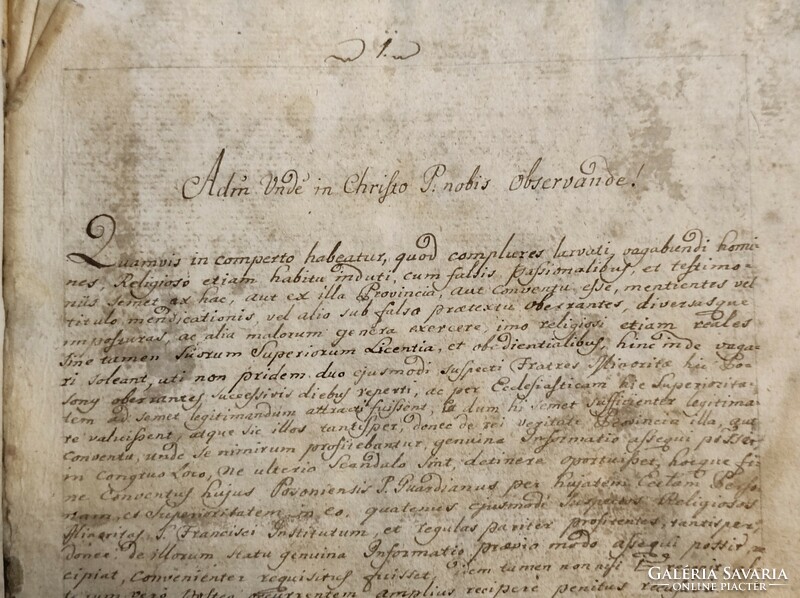 1.
Adm̃ Vndẽ in Christo P: nobis Observande!
Quamvis in comperto habeatur, quod complures larvati, vagabundi homi-
nes, Religioso etiam habitu induti, cum falsis passionalibus, et testimo-
niis semet ax hac, aut ex illa Provincia, aut Conventu, esse, mentientes vel
titulo mendicationis vel alio sub falso prætextu oberrantes, diversasque
imposturas, ac alia malorum genera exercere, imo religiosi etiam reales
sine tamen Suorum Superiorum Licentia, et obedientialibus, hinc inde vaga-
ri soleant, uti non pridem duo ejusmodi suspecti Fratres Minoritæ hic Po-
sony oberrantes successivis diebus reperti, ac per Ecclesiasticam hic Superiorita-
tem ad semet legitimandum attracti fuissent, la dum hi semet sufficienter legitima-
re valuissent, atque sic illos tantisper, donec de rei veritate Provincia illa, aut
Conventu, unde se nimirum profitebantur, genuina Informatio assequi possit
in Congruo Loco, ne ulterio Scandalo sint, detinere oportuisset, hocque fi-
ne Conventus hujus Posoniensis P. Guardianus per hujatem Eccl͠am Perso-
nam, et Superioritatem in eo, quatenus ejusmodi suspectos Religiosos
Minoritas, S. Francisci Institutum, et regulas pariter profitentes, tantisper
donec de illorum statu genuina Informatio prævio modo assequi possit, re-
cipiat, convenienter requisitus fuisset, idem tamen non nisi
terum vero Voltea ocurrentem amplius recipere penitus
GALÉRIA SAVARIA
ONLINE PIACTÉR